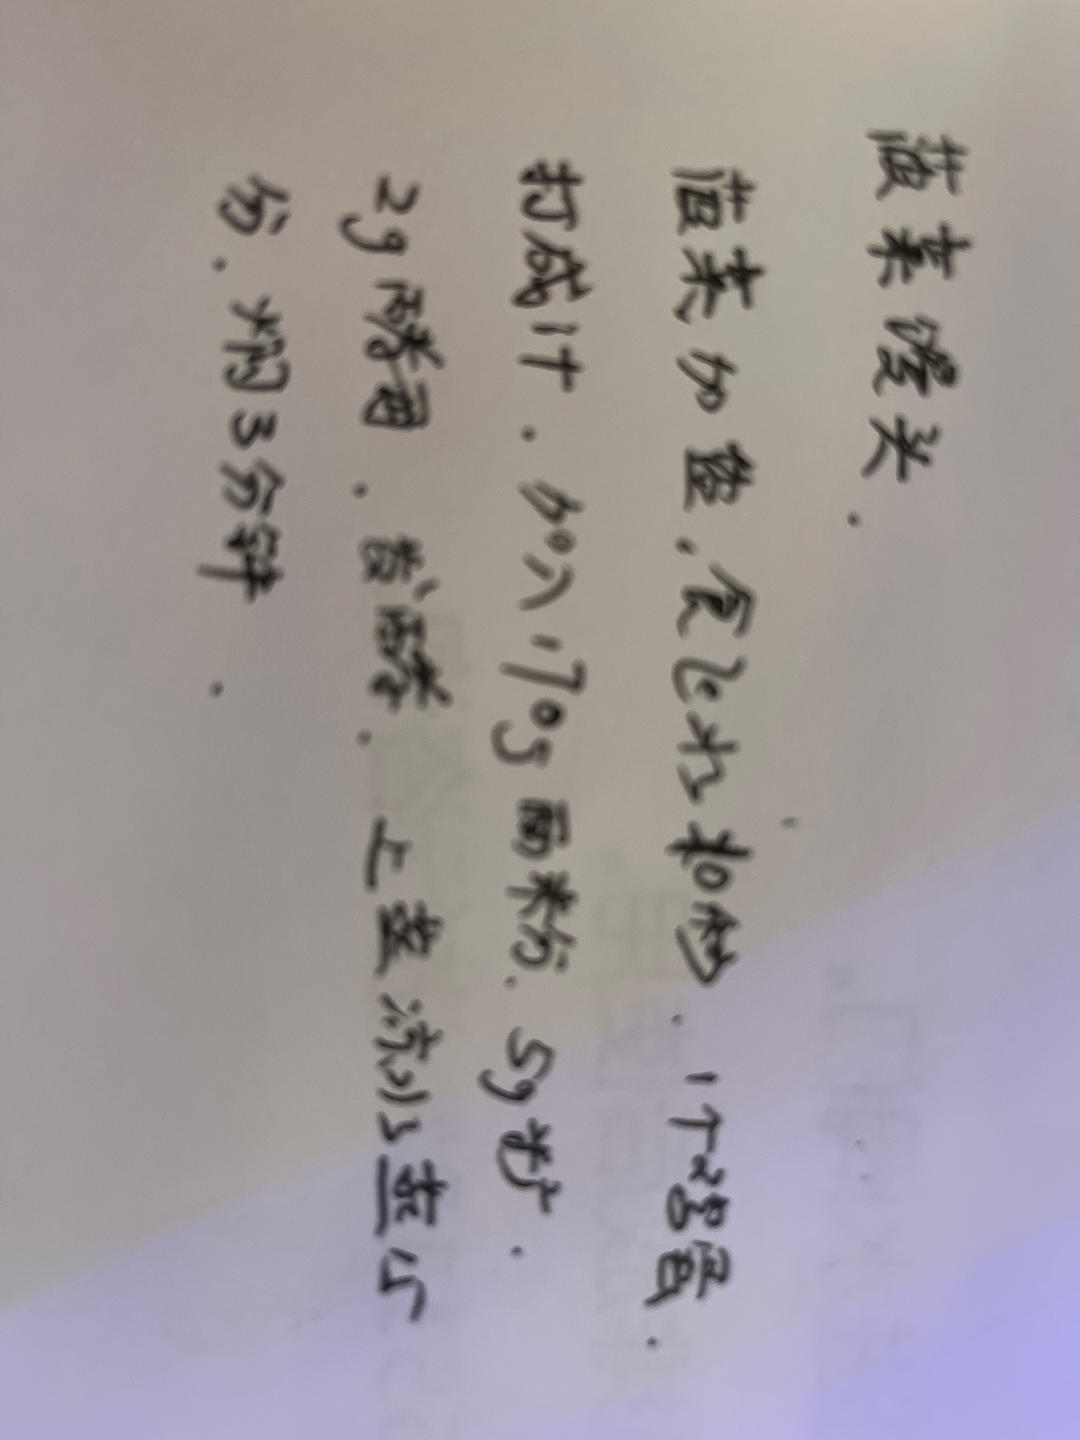 菠菜馒头.
菠菜加盐.食化水和你.1个鸡蛋.
打成汁.加入170g 面粉.5g糖.
2g酵母.发酵.上笼凉水蒸15
分.焖3分钟.